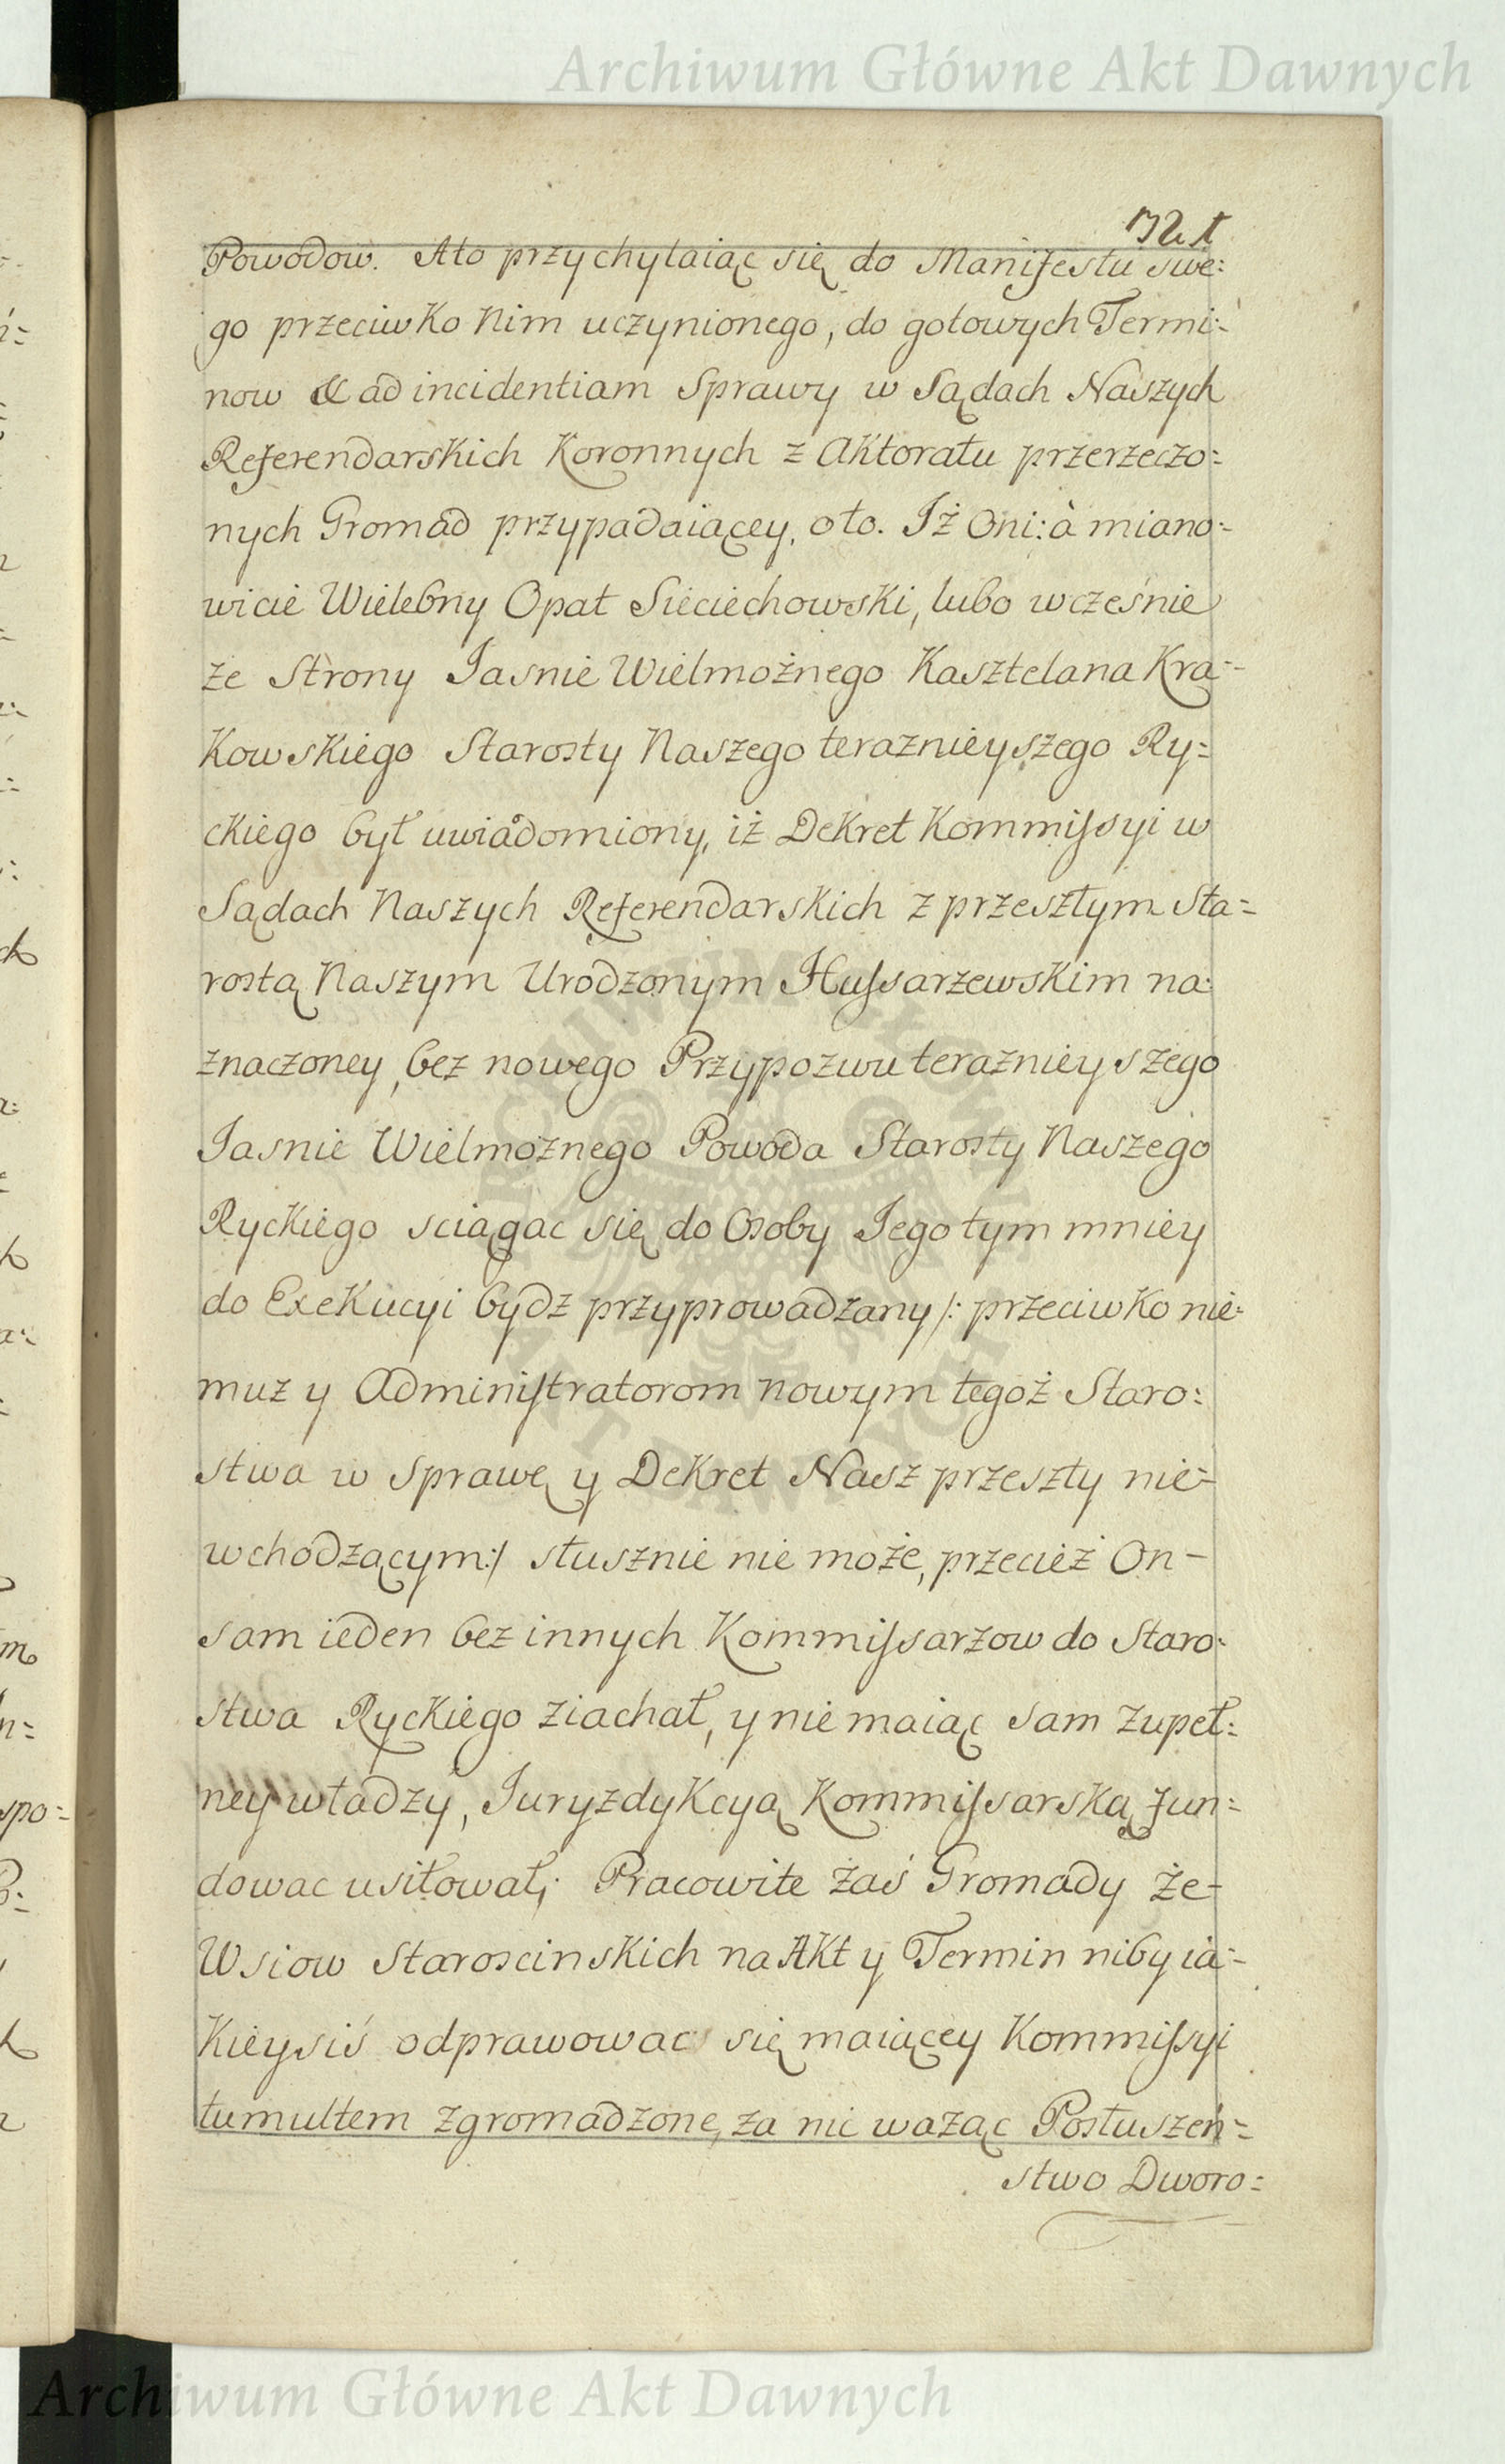 Archiwum Główne Akt Dawnych
321
Powodow. Ato przychylaiąc się do Manifestu swe:
go przeciwko Nim uczynionego, do gotowych Termi:
now & ad incidentiam Sprawy w Sądach Naszych
Referendarskich Koronnych z Aktoratu przerzeczo:
nych Gromad przypadaiącey, oto. Iż Oni: à miano:
wicie Wielebny Opat Sieciechowski, lubo wcześnie
ze Strony Jasnie Wielmożnego Kasztelana Kra:
kowskiego Starosty Naszego teraznieyszego Ry:
ckiego był uwiadomiony, iż Dekret Kommissyi w
Sądach Naszych Referendarskich z przeszłym Sta=
rostą Naszym Urodzonym Hussarzewskim na:
znaczoney, bez nowego Przypozwu teraznieyszego
Jasnie Wielmożnego Powoda Starosty Naszego
Ryckiego sciągac się do Osoby Jego tym mniey
do Exekucyi bydz przyprowadzany /: przeciwko nie:
muz y Administratorom nowym tegoż Staro:
stwa w Sprawę y Dekret Nasz przeszły nie=
wchodzącym:/ słusznie nie może, przecież On –
sam ieden bez innych Kommissarzow do Staro:
stwa Ryckiego ziachał, y nie maiąc sam zupeł:
ney władzy, Juryzdykcyą Kommissarską fun:
dowac usiłował; Pracowite zaś Gromady ze=
Wsiow Staroscinskich na Akt y Termin niby ia=
kieysiś odprawowac się maiącey Kommissyi
tumultem zgromadzone, za nic ważąc Posłuszeń=
stwo Dworo:
Archiwum Główne Akt Dawnych